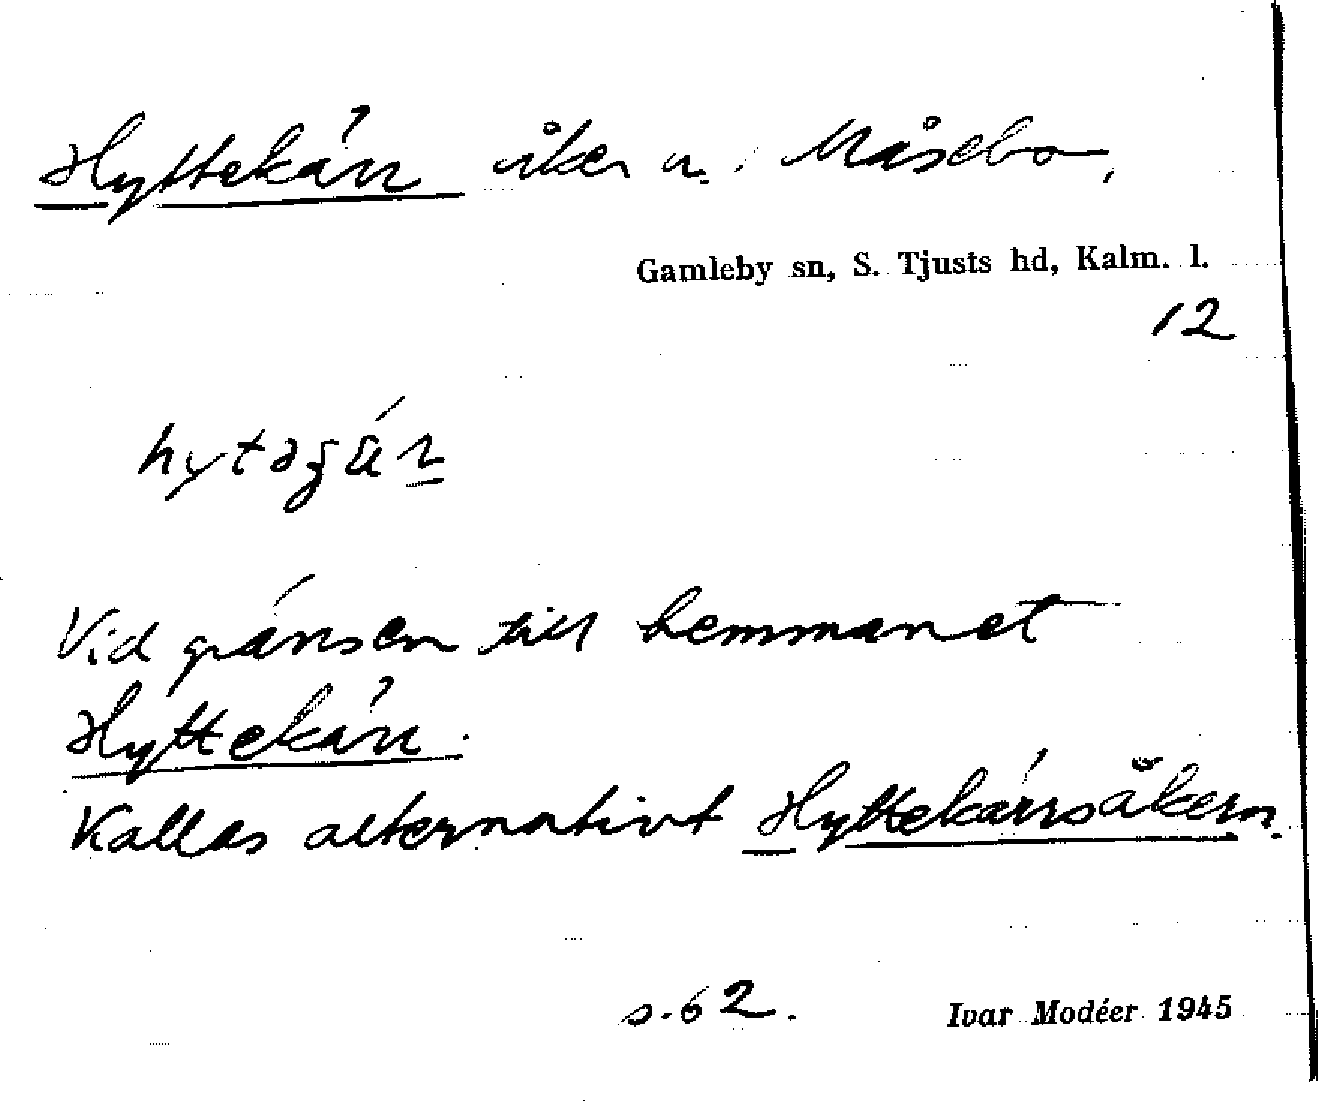 Hyttekärr åker n. Måsebo,
Gamleby sn, S. Tjusts hd, Kalm. l.
12
Vid gränsen till hemmanet
Hyttekärr.
Kallas alternativt Hyttekärrsåkern.
s. 62.
Ivar Modéer 1945